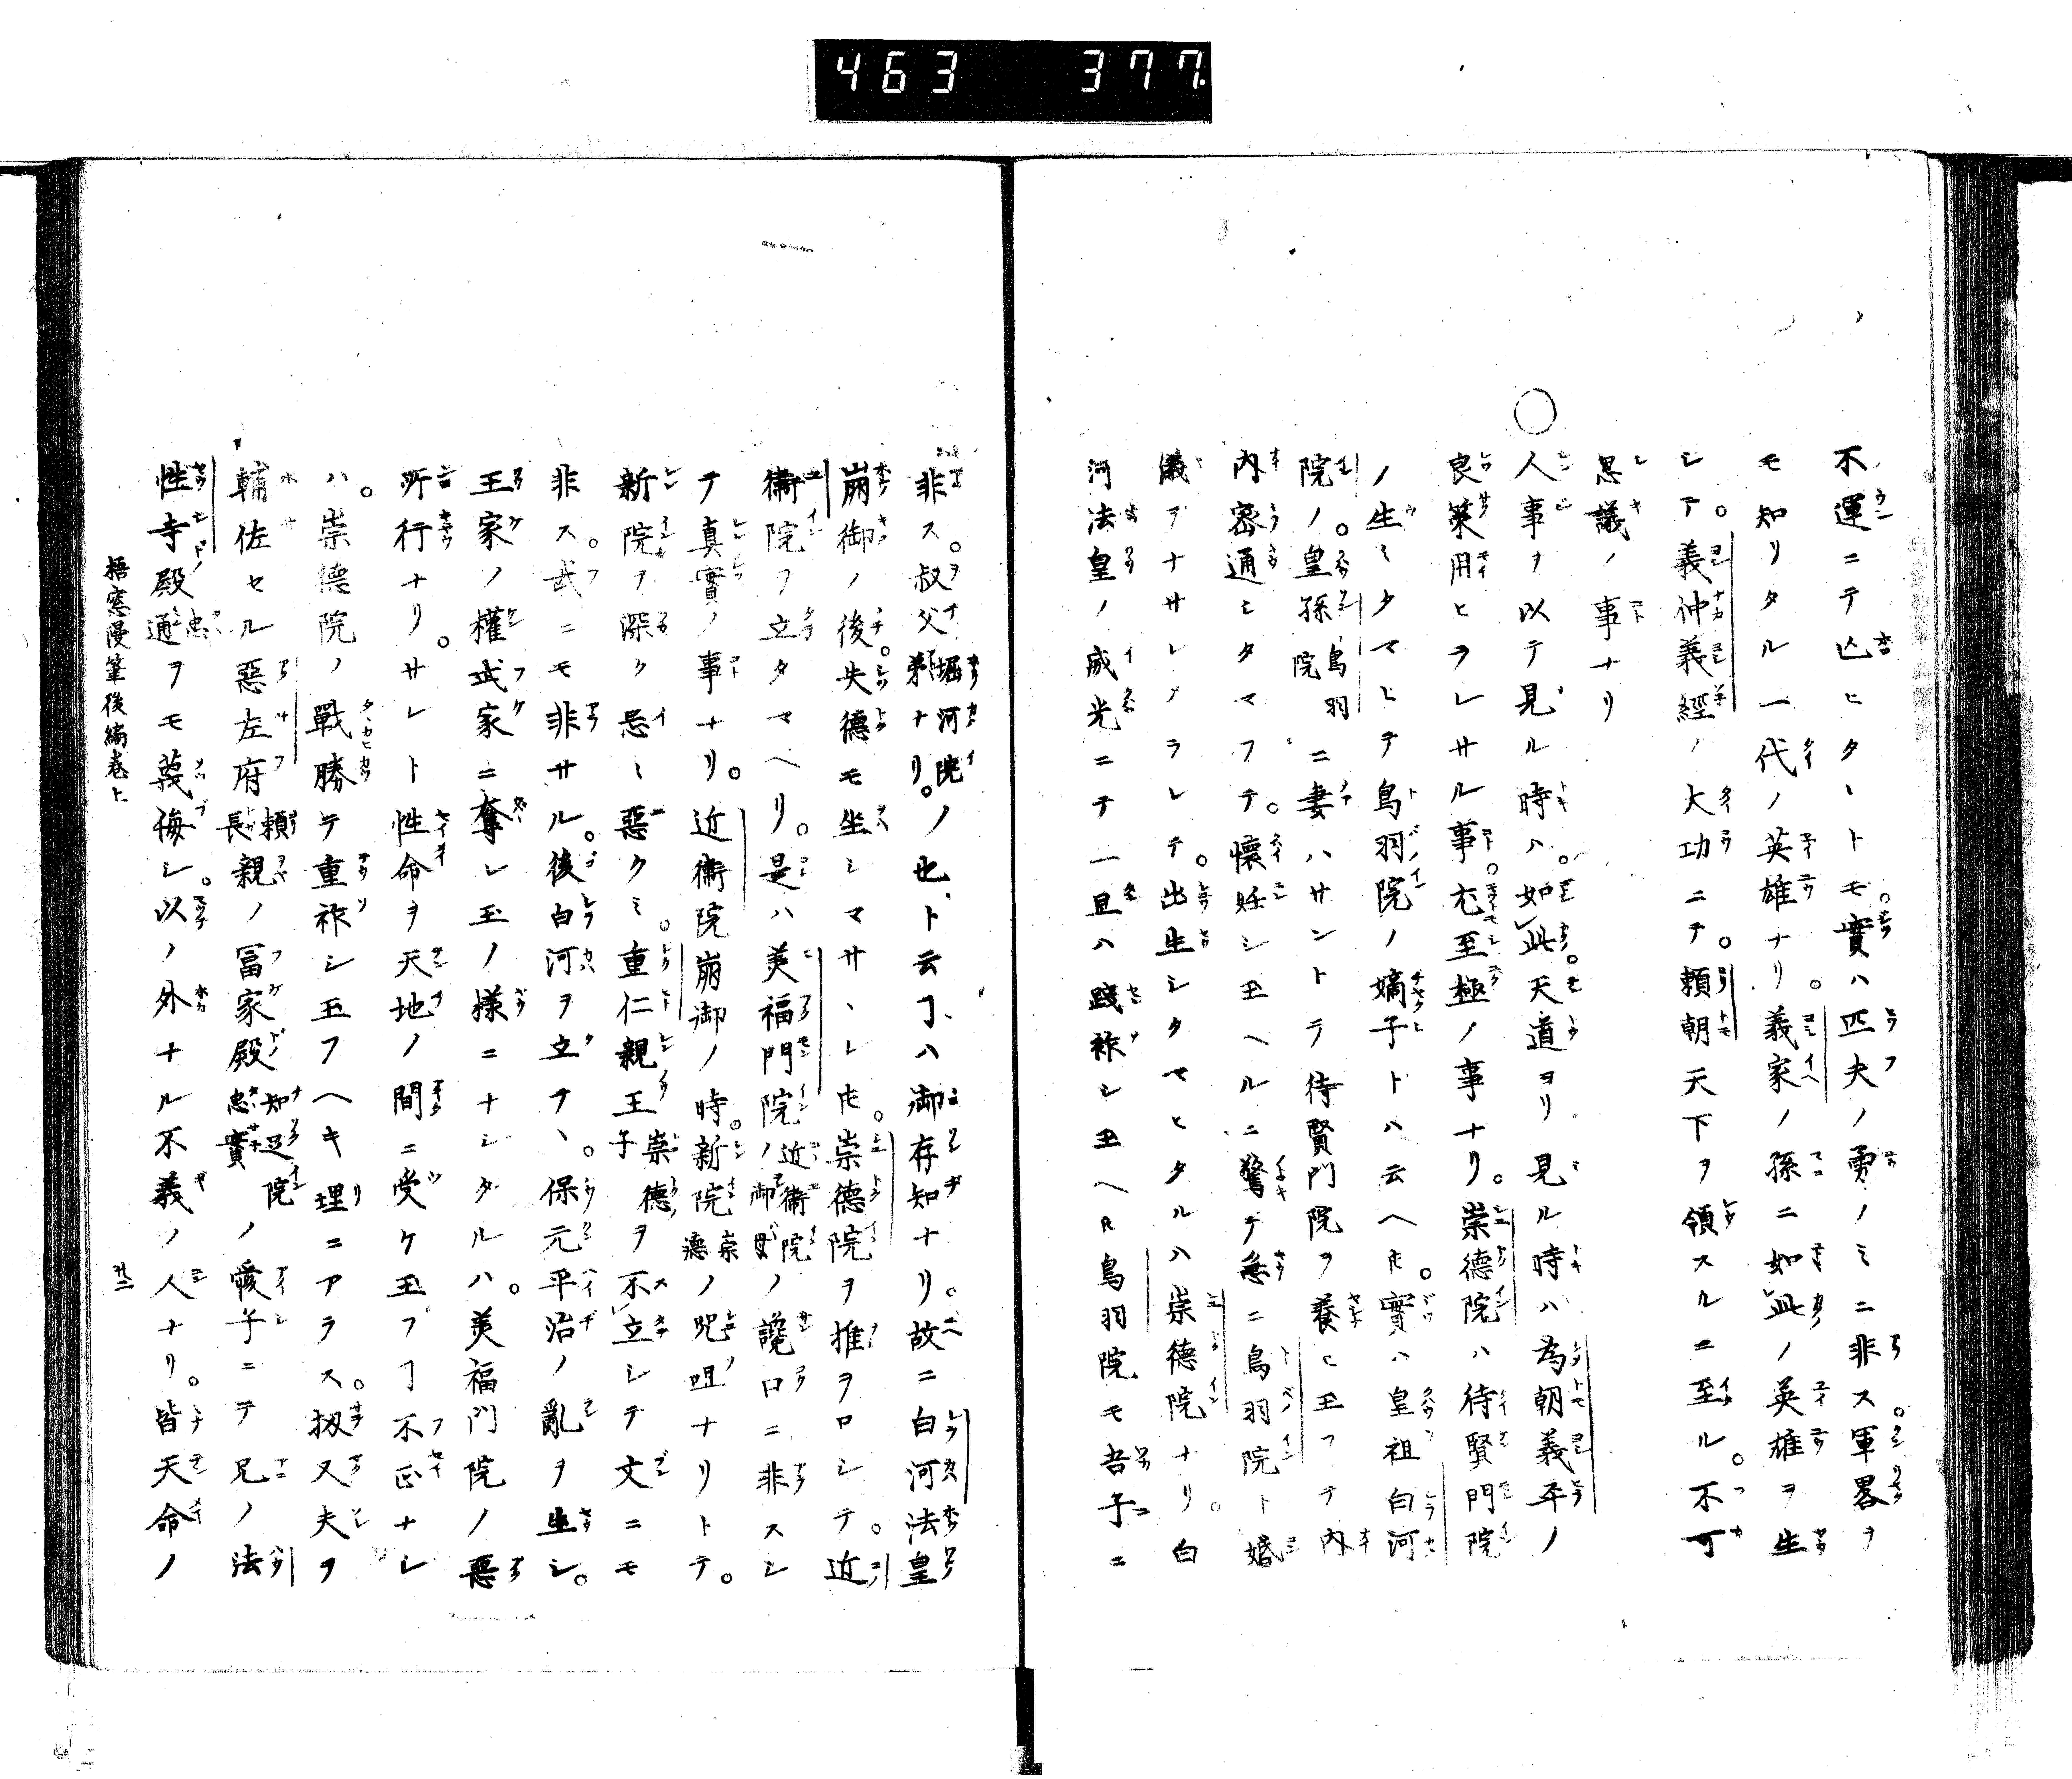 463 377
不運ニテ亡ヒタヽトモ實ハ匹夫ノ勇ノミニ非ス。軍畧ヲ
モ知リタル一代ノ英雄ナリ。義家ノ孫ニ如此ノ英雄ヲ生
シテ。義仲義經ノ大功ニテ。頼朝天下ヲ領スルニ至ル。不可
思議ノ事ナリ
○人事ヲ以テ見ル時ハ。如此。天道ヨリ見ル時ハ為朝義平ノ
良策用ヒラレサル事。尤至極ノ事ナリ。崇德院ハ待賢門院
ノ生ミタマヒテ鳥羽院ノ嫡子トハ云ヘ𪜈。實ハ皇祖白河
院ノ。皇孫鳥羽院ニ妻ハサントテ待賢門院ヲ養ヒ玉フテ内
内密通シタマフテ。懷妊シ玉ヘルニ驚テ急ニ鳥羽院ト婚
儀ヲナサレメラレテ。出生シタマヒタルハ崇德院ナリ。白
河法皇ノ威光ニテ一旦ハ踐祚シ玉ヘ𪜈鳥羽院モ吾子ニ
非ス。叔父堀河院ノ弟ナリ。ノ也ト云ヿハ御存知ナリ。故ニ白河法皇
崩御ノ後。失德モ坐シマサヽレ𪜈。崇德院ヲ推ヲロシテ。近
衞院ヲ立タマヘリ。是ハ美福門院近衞院ノ御母ノ讒口ニ非スシ
テ真實ノ事ナリ。近衞院崩御ノ時。新院崇德ノ咒咀ナリトテ。
新院ヲ深ク忌ミ惡クミ。重仁親王崇德子ヲ不立シテ文ニモ
非ス。武ニモ非サル。後白河ヲ立テヽ。保元平治ノ亂ヲ坐シ。
王家ノ權武家ニ奪レ玉ノ様ニナシタルハ。美福門院ノ惡
所行ナリ。サレト性命ヲ天地ノ間ニ受ケ玉フヿ不正ナレ
ハ。崇德院ノ戰勝テ重祚シ玉フヘキ理ニアラス。扨又夫ヲ
輔佐セル惡左府頼長親ノ冨家殿知足院忠實ノ愛子ニテ兄ノ法
性寺殿忠通ヲモ蔑侮シ。以ノ外ナル不義ノ人ナリ。皆天命ノ
梧窓漫筆後編卷上 廿二